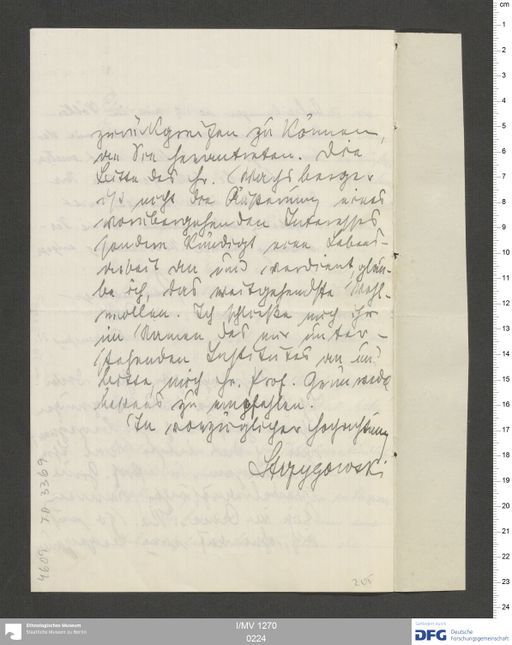 zurückgreifen zu können,
an Sie herantreten. Die
Bitte des Hr. Wachsberger
ist nicht die Äußerung eines
vorübergehenden Interesses
sondern kündigt eine Lebens-
arbeit an und verdient, glau-
be ich, das weitgehendste Wohl-
wollen. Ich schließe mich ihr
im Namen des mir unter-
stehenden Institutes an und
bitte mich Hr. Prof. Grünwedel
bestens zu empfehlen.
In vorzüglicher Hochachtung
Strzygowski
4609 3369
205
cm
1
2
3
4
5
6
7
8
9
10
11
12
13
14
15
16
17
18
19
20
21
22
23
24
Ethnologisches Museum
Staatliche Museen zu Berlin
I/MV 1270
0224
Gefördert durch
DFG Deutsche
Forschungsgemeinschaft